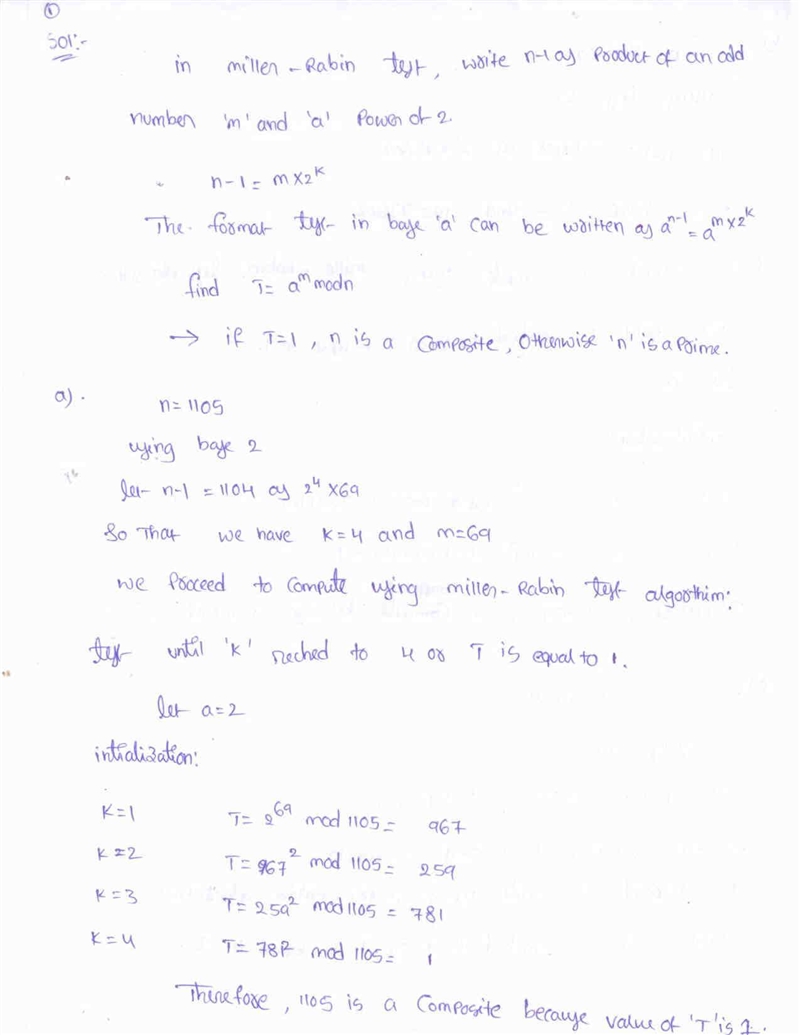 ①
Sol:-
in miller - Rabin test, write n-1 as Product of an odd
number 'm' and 'a' Power of 2.
n-1 = m×2^k
The format test in base 'a' can be written as a^n-1 = a^m×2^k
find T= a^m modn
→ if T=1, n is a Composite, Otherwise 'n' is a Prime.
a). n=1105
using base 2
let n-1 = 1104 as 2^4 ×69
So That we have k=4 and m=69
we Proceed to Compute using miller - Rabin test algorthim:
test until 'k' reched to 4 or T is equal to 1.
let a=2
intialization:
K=1 T= 2^69 mod 1105= 967
K=2 T= 967^2 mod 1105= 259
K=3 T= 259^2 mod 1105 = 781
K=4 T= 781^2 mod 1105= 1
Therefore, 1105 is a Composite because value of 'T' is 1.